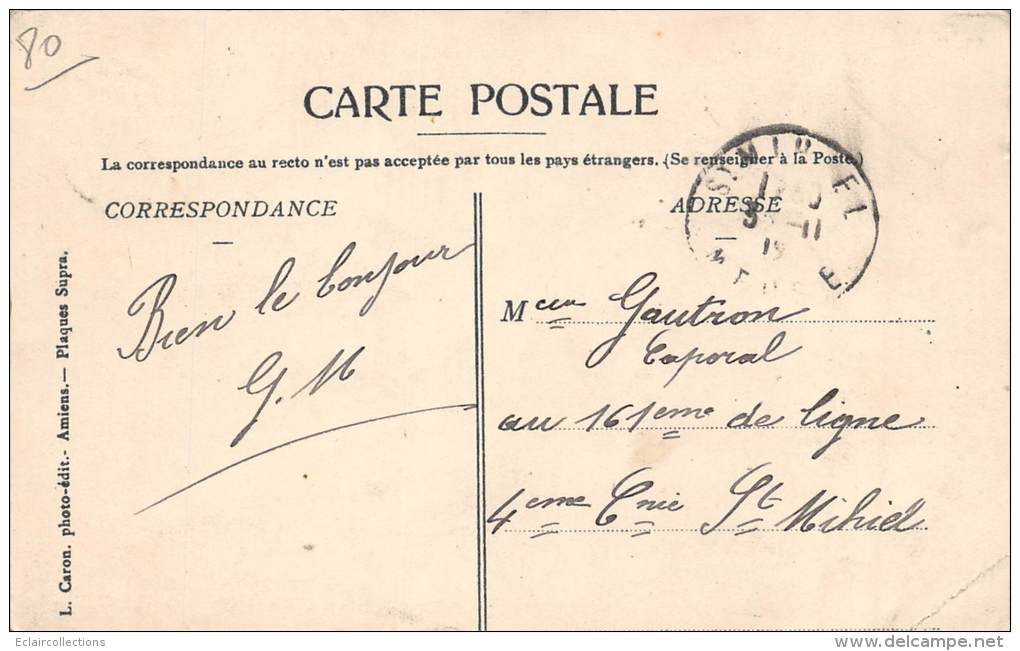 80
CARTE POSTALE
La correspondance au recto n'est pas acceptée par tous les pays étrangers. (Se renseigner à la Poste.)
CORRESPONDANCE
ADRESSE
Bien le bonjour
G. M
Mceur Gautron
Caporal
au 161eme de ligne
4eme Cnie St Mihiel
L. Caron. photo-édit.- Amiens.— Plaques Supra.
Eclaircollections
delcampe.net